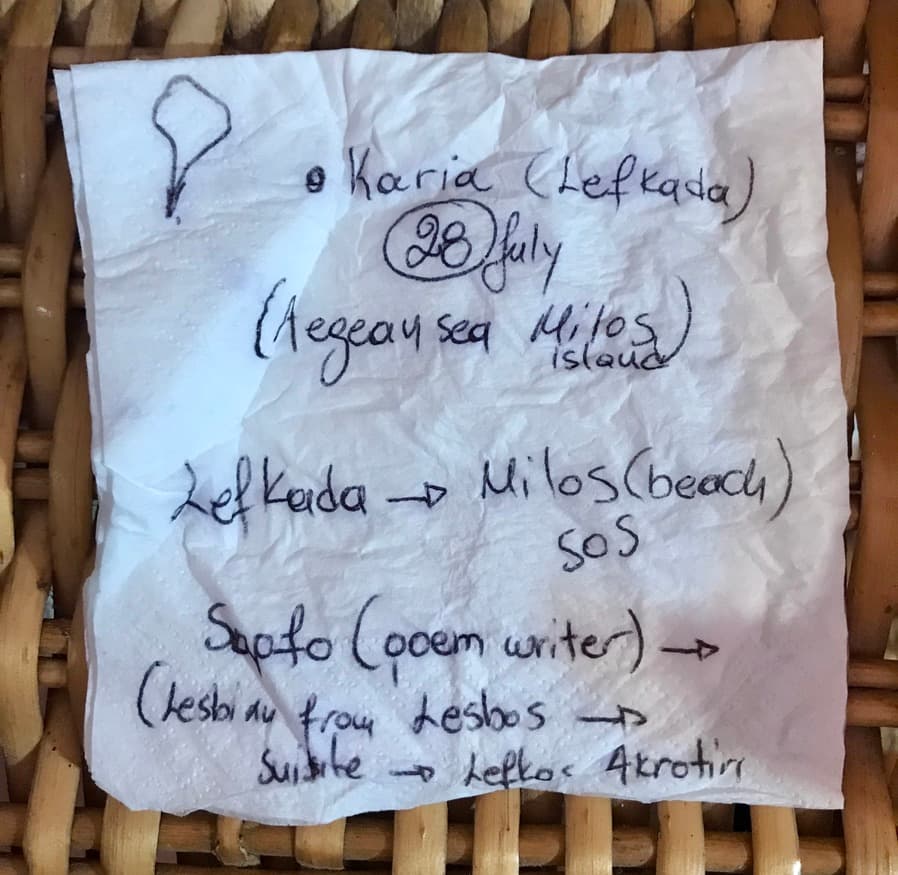 • Karia (Lefkada)
28 July
(Aegean sea Milos
island)
Lefkada → Milos (beach)
SOS
Sapfo (poem writer) →
(Lesbian from Lesbos →
Lefkos Akrotiri